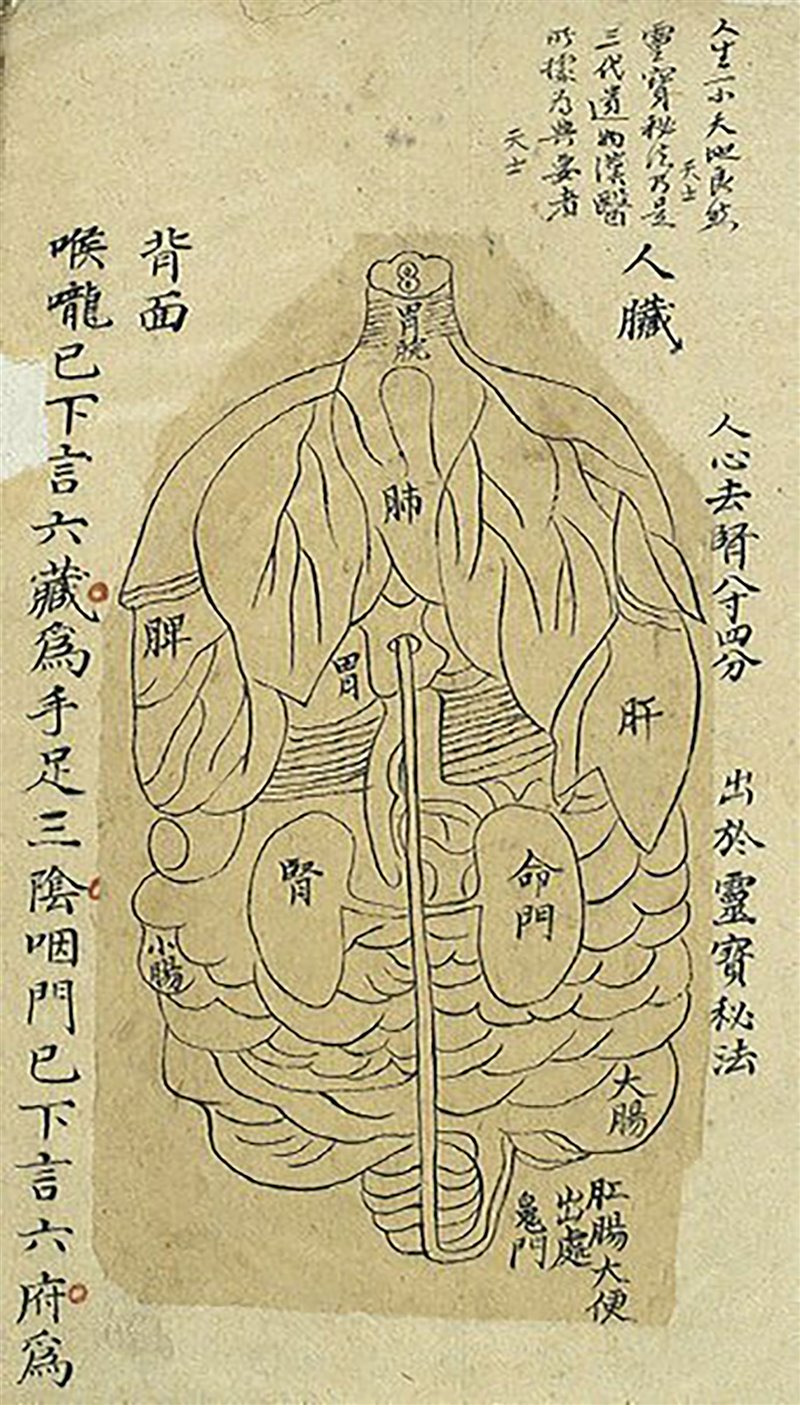 人生一小天地良然
天士
靈寶秘法乃是
三代遺物漢醫
所據為典要者
天士
人臟
人心去腎八寸四分
出於靈寶秘法
胃脘
肺
肝
胃
脾
命門
腎
小腸
大腸
肛腸大便
出處
鬼門
背面
喉嚨已下言六藏爲手足三陰咽門已下言六府爲